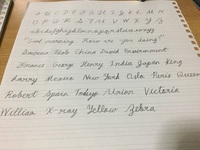 A B C D E F G H I J K L M N
O P Q R S T U V W X Y Z
abcdefghijklmnopqrstuvwxyz
"Good morning. How are you doing?"
America Bob China David Environment
France George Henry India Japan King
Larry Mexico New York Oslo Paris Queen
Robert Spain Tokyo Union Victoria
William X-ray Yellow Zebra